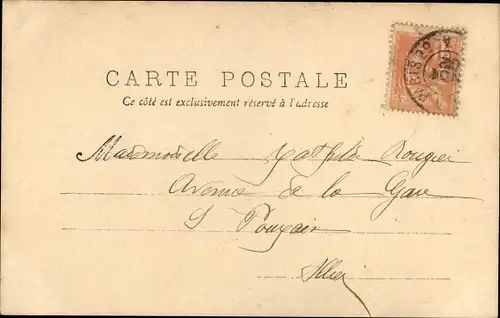 CARTE POSTALE
Ce côté est exclusivement réservé à l'adresse
Mademoiselle Mathilde Rougier
Avenue de la Gare
S Pourçain
Allier